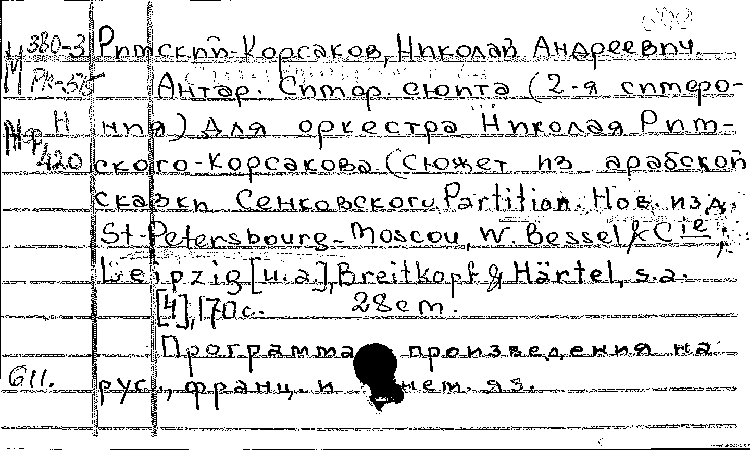 М 380-3 Римский-Корсаков, Николай Андреевич
РК-515 Антар. Симфон. сюита (2-я симфо-
Мф Н ния) для оркестра Николая Рим-
420 ского-Корсакова (Сюжет из арабской
сказки Сенковского. Partition. Нов. изд.
St-Petersbourg-Moscou, W. Bessel & Cie;
Leipzig [u.a], Breitkopf & Härtel, s.a.
[4], 170 с. 28 cm.
Программа произведения на
611. рус., франц. и нем. яз.